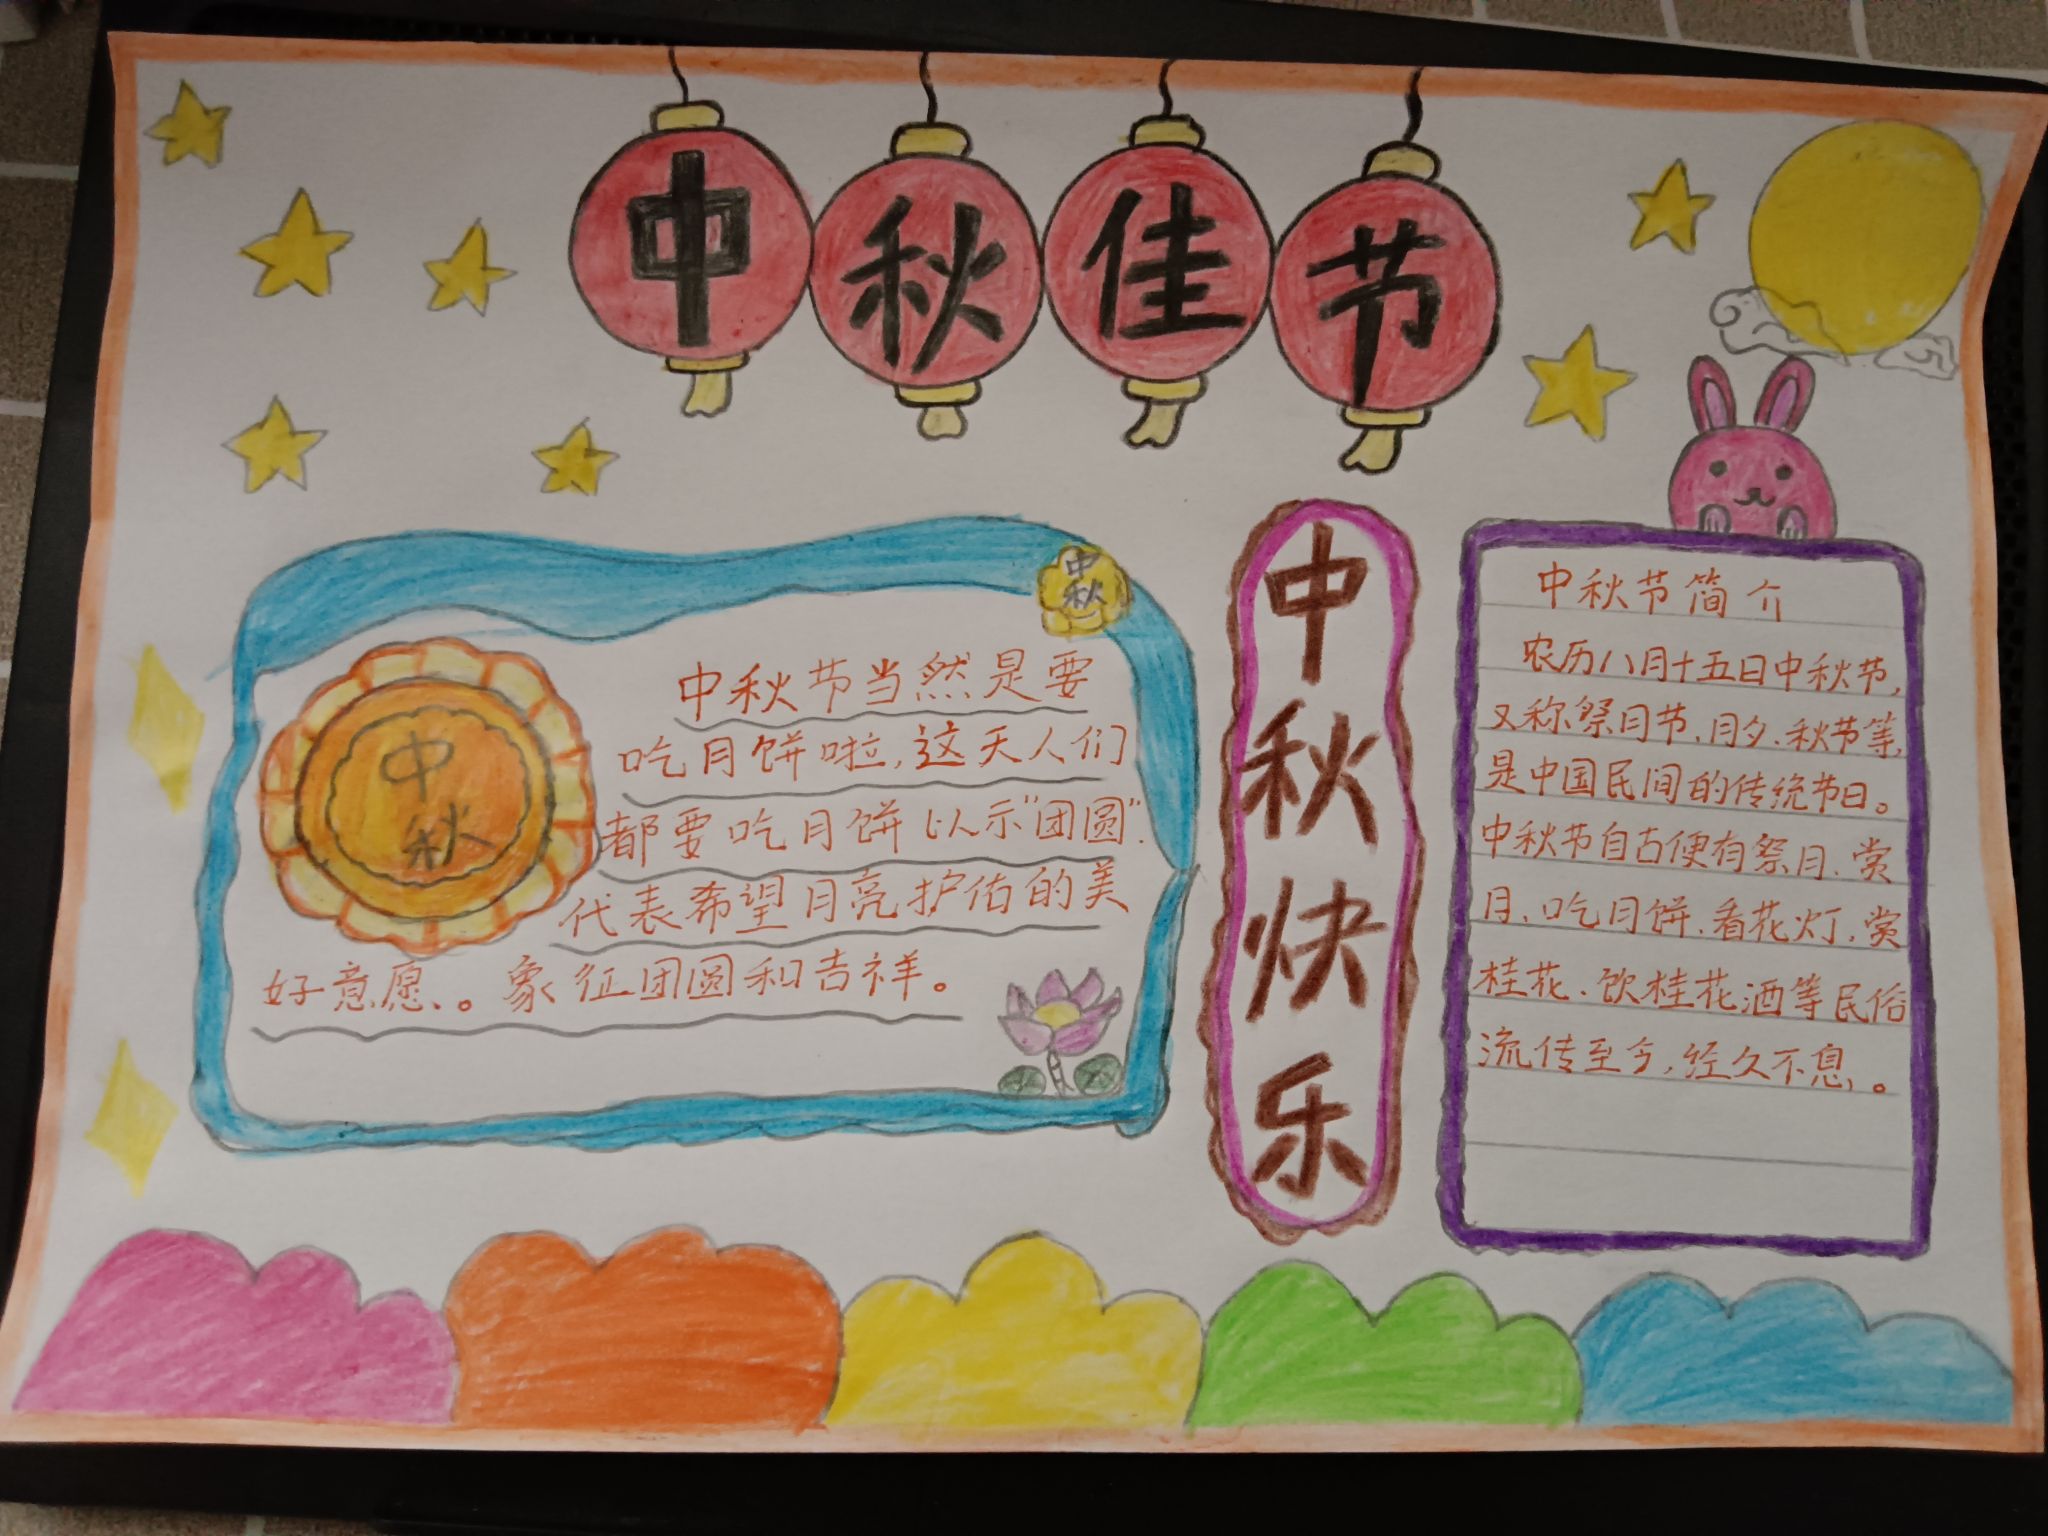 中秋佳节
中秋
中秋
中秋节当然是要
吃月饼啦,这天人们
都要吃月饼以示"团圆".
代表希望月亮护佑的美
好意愿、。象征团圆和吉祥。
中秋快乐
中秋节简介
农历八月十五日中秋节,
又称祭月节、月夕、秋节等,
是中国民间的传统节日。
中秋节自古便有祭月、赏
月、吃月饼、看花灯、赏
桂花、饮桂花酒等民俗
流传至今,经久不息、。